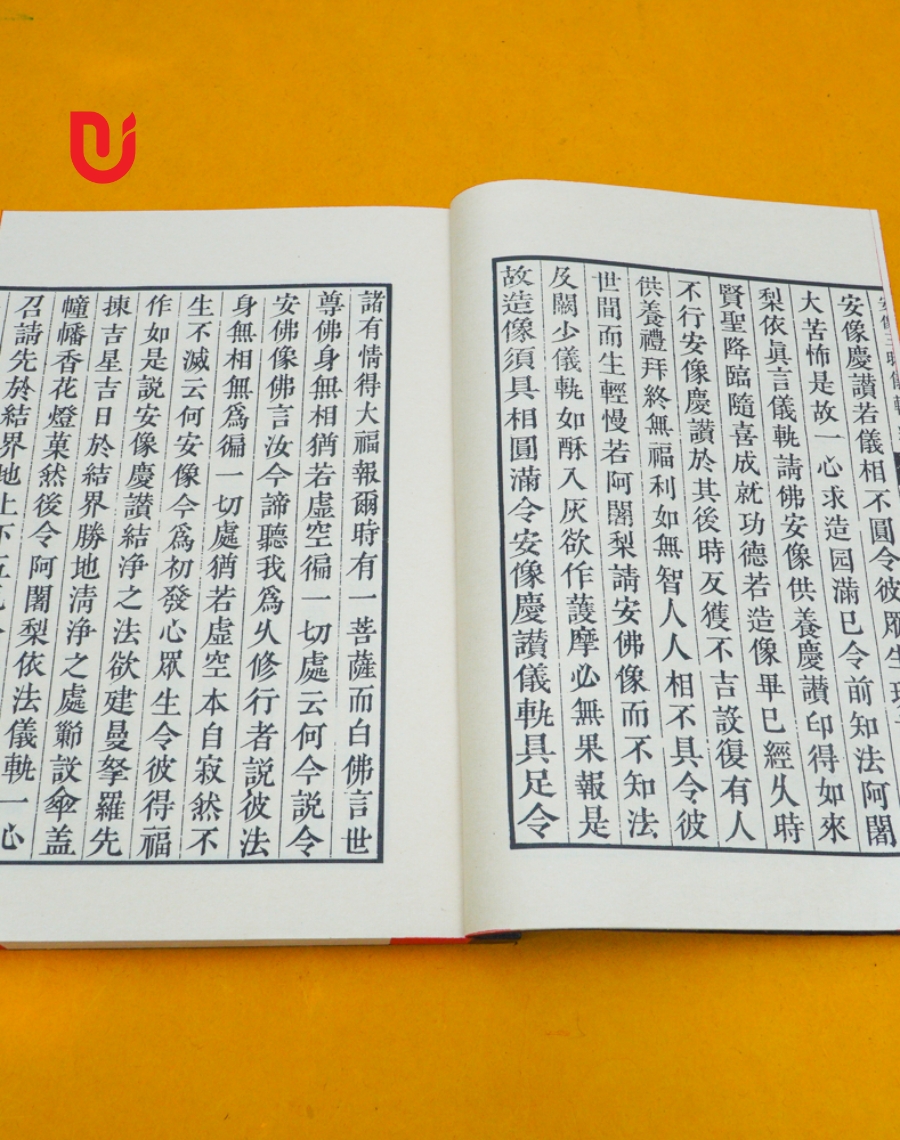 安像三昧儀軌
安像慶讃若儀相不圓令彼眾生
大苦怖是故一心求造园滿已令前知法阿闍
梨依眞言儀軌請佛安像供養慶讃印得如來
賢聖降臨隨喜成就功德若造像畢已經久時
不行安像慶讃於其後時反獲不吉設復有人
供養禮拜終無福利如無智人人相不具令彼
世間而生輕慢若阿闍梨請安佛像而不知法
及闕少儀軌如酥入灰欲作護摩必無果報是
故造像須具相圓滿令安像慶讃儀軌具足令
諸有情得大福報爾時有一菩薩而白佛言世
尊佛身無相猶若虛空徧一切處云何今説令
安佛像佛言汝今諦聽我為久修行者説彼法
身無相無為徧一切處猶若虛空本自寂然不
生不滅云何安像今為初發心眾生令彼得福
作如是説安像慶讃結淨之法欲建曼拏羅先
揀吉星吉日於結界勝地清淨之處嚴設傘盖
幢幡香花燈菓然後令阿闍梨依法儀軌一心
召請先於結界地上下